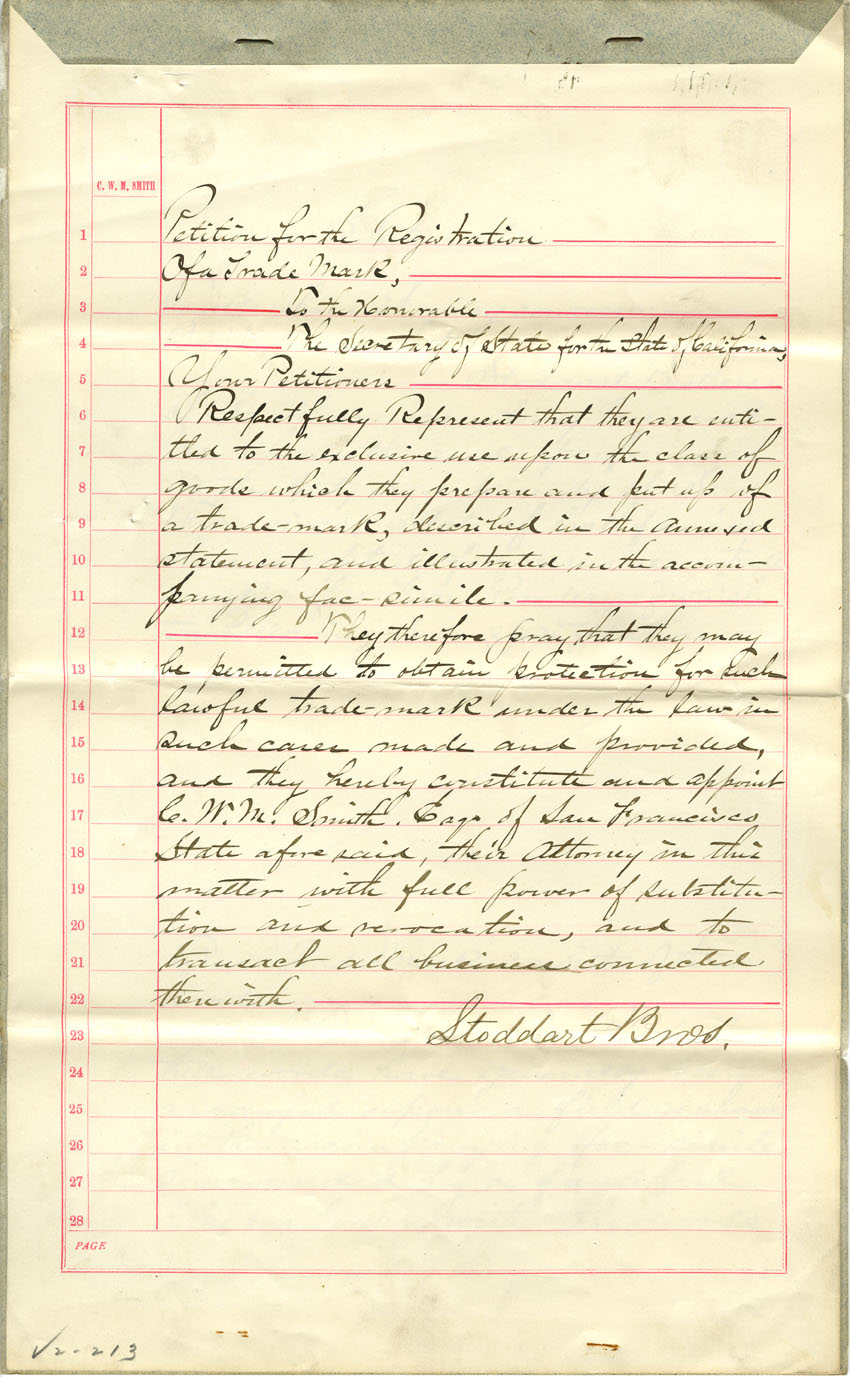 C. W. M. SMITH
1 Petition for the Registration
2 Of a Trade Mark,
3 To the Honorable
4 The Secretary of State for the State of California,
5 Your Petitioners
6 Respectfully Represent that they are enti-
7 tled to the exclusive use upon the class of
8 goods which they prepare and put up of
9 a trade-mark, described in the annexed
10 statement, and illustrated in the accom-
11 panying fac-simile.
12 They therefore pray that they may
13 be permitted to obtain protection for such
14 lawful trade-mark under the law in
15 such cases made and provided,
16 and they hereby constitute and appoint
17 C. W. M. Smith. Esq. of San Francisco
18 State aforesaid, their Attorney in this
19 matter with full power of substitu-
20 tion and revocation, and to
21 transact all business connected
22 therewith.
23 Stoddart Bros.
24
25
26
27
28
PAGE
V2-213